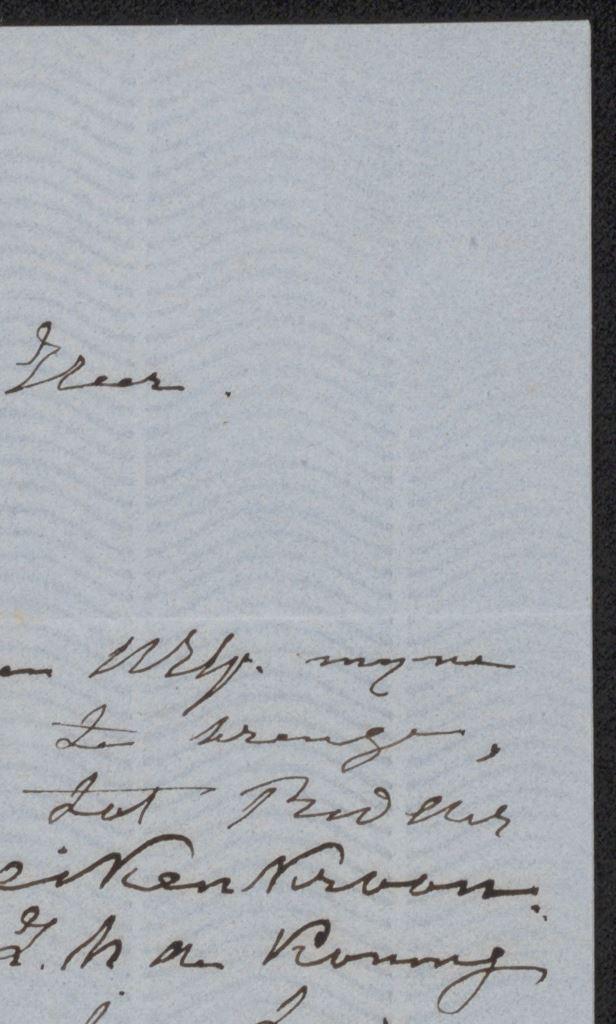 Heer.
en WEly. myne
te brengen,
tot Ridder
eikenkroon.
Z. M. de Koning